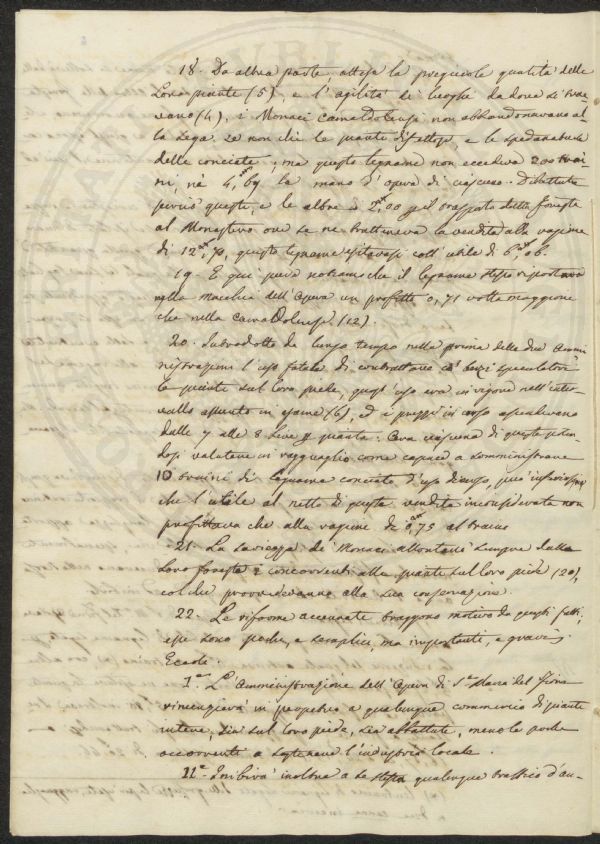 18. Da altra parte, attesa la pregievole quantità delle
Loro piante (5), e l'agilità de' luoghi da dove si trae-
vano (4), i Monaci Camaldolensi non abbandonavano al-
la Sega se non che le piante difettose, e le spedanabush
delle conciate; ma questo legname non eccedeva 200 trai-
ni, nè 4, 69 la mano d'opera di ciascuno. Dibattute
perciò queste, e le altre £ 2,00 p il trasporto dalla foresta
al Monastero ove se ne trattenava la vendita alla ragione
di 12,70, questo legname esitavasi coll'utile di 6,06.
19. E qui pure notiamo che il legname stesso riportava
nella Macchia dell'Opera un profitto 0,71 volte maggiore
che nella Camaldolense (12).
20. Introdotto da lungo tempo nella prima delle due Ammi-
nistrazioni l'uso fatale di contrattare co' terzi speculatori
le piante sul loro piede, quest'uso era in vigore nell'inter-
vallo appunto in esame (6), ed i prezzi in corso ascendevano
dalle 7 alle 8 Lire p pianta: Ora ciascuna di queste poten-
dosi valutare in ragguaglio come capace a somministrare
10 traini di legname conciato d'uso diverso, può inferirsi
che l'utile al netto di questa vendita inconsiderata non
profittava che alla ragione di 0,75 al traino
21. La saviezza de' Monaci allontanò sempre dalla
Loro foresta i concorrenti alle piante sul loro piede (20),
col che provvedevano alla sua conservazione.
22. Le riforme accennate traggono motivo da questi fatti;
esse sono poche, e semplici, ma importanti, e gravi.
Eccole.
1.ª L'Amministrazione dell'Opera di S.ª Maria del Fiore
rinunzierà in perpetuo a qualunque commercio di piante
intere, sia sul loro piede, sia abbattute, meno le poche
occorrenti a sostenere l'industria locale.
11.ª Inibirà inoltre a se stessa qualunque traffico d'an-